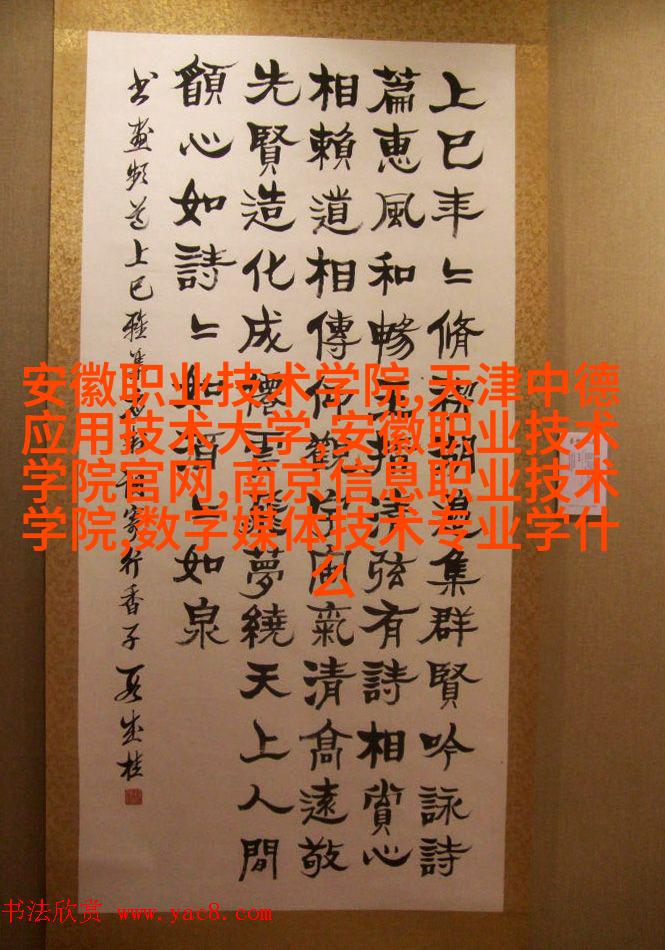 上巳年〻脩禊湖邊集群賢吟詠詩
篇惠風和暢播清弦有詩相賞心
相賴道相傳仰觀氣清高遠敬
先賢造化成雲夢繞天上人間
願心如詩〻如酒〻如泉
书画频道上巳雅集寄行香子
安徽职业技术学院,天津中德
应用技术大学,安徽职业技术
学院官网,南京信息职业技术
学院,数字媒体技术专业学什
么
书法欣赏 www.yac8.com